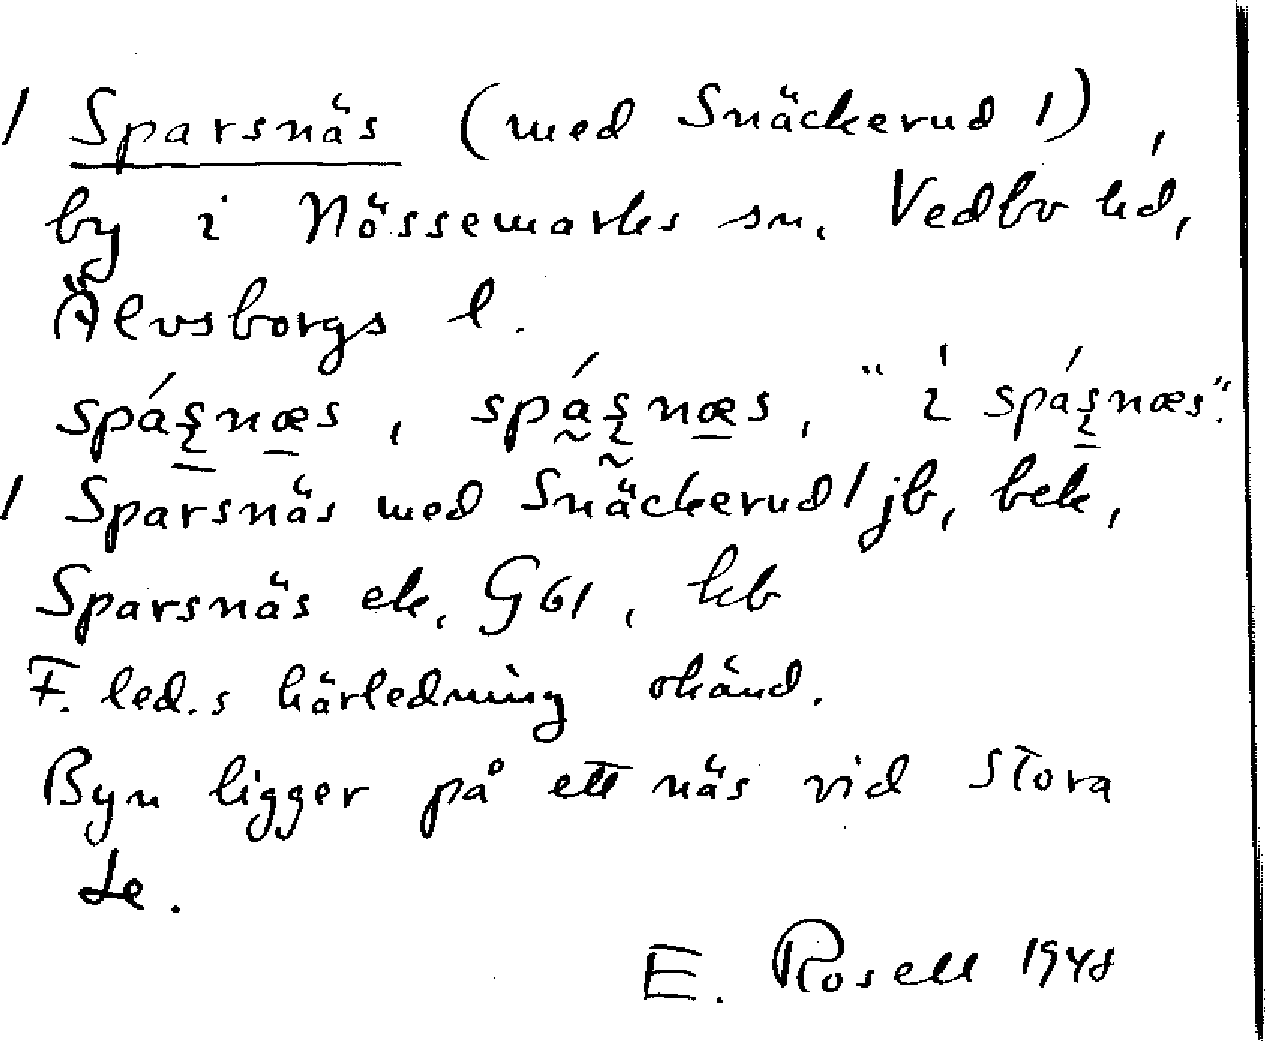 1 Sparsnäs (med Snäckerud 1),
by i Nössemarks sn, Vedbo hd,
Älvsborgs l.
spáʂnæs, spáʂnæs, "i spáʂnæs".
1 Sparsnäs med Snäckerud 1 jb, bek,
Sparsnäs ek, G61, kb
F. led.s härledning okänd.
Byn ligger på ett näs vid Stora
Le.
E. Rosell 1948